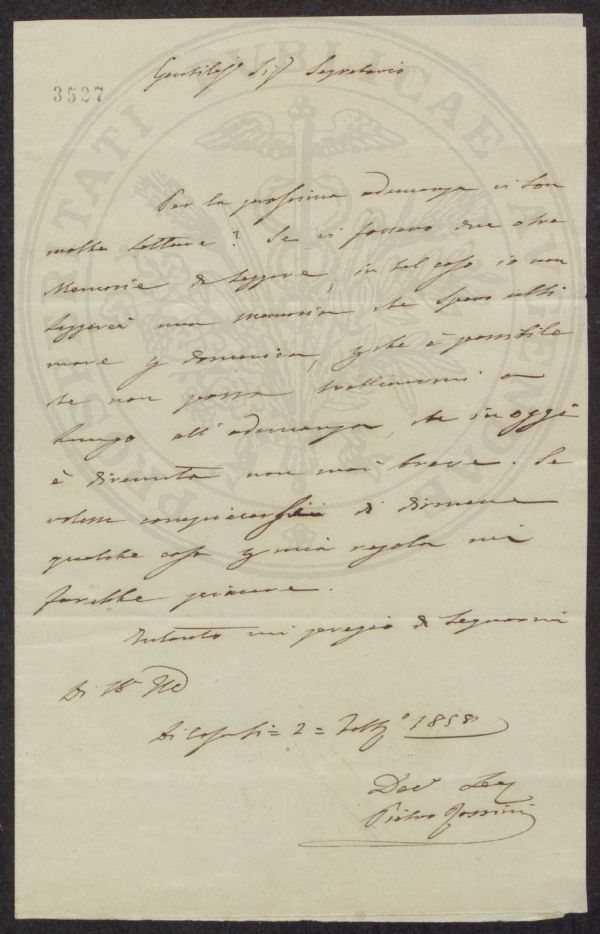 3527
Gentiliss.° Sig.r Segretario
Per la prossima adunanza vi son
molte letture? Se vi fossero due otre
Memorie da leggere, in tal caso io non
leggerei una memoria che spero ulti
mare p domenica, pche è possibile
che non possa trattenermi a
lungo all'adunanza, che in oggi
è divenuta non mai breve. Se
volesse di dirmene
qualche cosa p mia regola mi
farebbe piacere.
Intanto mi pregio di segnarmi
Di
Di Casa li = 2 = 1858
Dev.
Pietro
PROSPERITATI PUBLICAE AUGENDAE